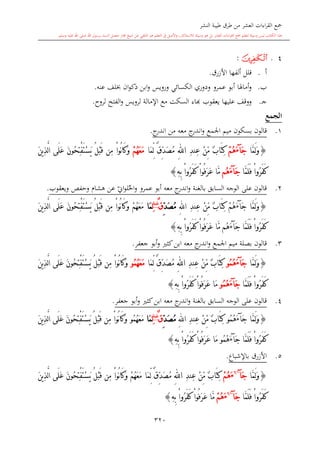 جمع القراءات العشر من طرق طيبة النشر
٤ . ﴿ٱلْكَـٰفِرِينَ﴾ :
أ . قلل ألفها الأزرق.
ب. وأمالها أبو عمرو ودوري الكسائي ورويس وابن ذكوان بخلف عنه.
جـ. ووقف عليها يعقوب بهاء السكت مع الإمالة لرويس والفتح لروح.
الجمع
١. قالون بسكون ميم الجمع واندرج معه من اندرج.
﴿ وَلَمَّا جَآءَهُمْ كِتَـٰبٌ مِّنْ عِندِ ٱللَّهِ مُصَدِّقٌ لِّمَا مَعَهُمْ وَكَانُوا۟ مِن قَبْلُ يَسْتَفْتِحُونَ عَلَى ٱلَّذِينَ
كَفَرُوا۟ فَلَمَّا جَآءَهُم مَّا عَرَفُوا۟ كَفَرُوا۟ بِهِۦ ﴾
٢. قالون على الوجه السابق بالغنة واندرج معه أبو عمرو والحلواني عن هشام وحفص ويعقوب.
﴿ وَلَمَّا جَآءَهُمْ كِتَـٰبٌ مِّنْ عِندِ ٱللَّهِ مُصَدِّقٌ لِّمَا مَعَهُمْ وَكَانُوا۟ مِن قَبْلُ يَسْتَفْتِحُونَ عَلَى ٱلَّذِينَ
كَفَرُوا۟ فَلَمَّا جَآءَهُم مَّا عَرَفُوا۟ كَفَرُوا۟ بِهِۦ ﴾
٣. قالون بصلة ميم الجمع واندرج معه ابن كثير وأبو جعفر.
﴿ وَلَمَّا جَآءَهُمُو كِتَـٰبٌ مِّنْ عِندِ ٱللَّهِ مُصَدِّقٌ لِّمَا مَعَهُمُو وَكَانُوا۟ مِن قَبْلُ يَسْتَفْتِحُونَ عَلَى ٱلَّذِينَ
كَفَرُوا۟ فَلَمَّا جَآءَهُمُو مَّا عَرَفُوا۟ كَفَرُوا۟ بِهِۦ ﴾
٤. قالون على الوجه السابق بالغنة واندرج معه ابن كثير وأبو جعفر.
﴿ وَلَمَّا جَآءَهُمُو كِتَـٰبٌ مِّنْ عِندِ ٱللَّهِ مُصَدِّقٌ لِّمَا مَعَهُمُو وَكَانُوا۟ مِن قَبْلُ يَسْتَفْتِحُونَ عَلَى ٱلَّذِينَ
كَفَرُوا۟ فَلَمَّا جَآءَهُمُو مَّا عَرَفُوا۟ كَفَرُوا۟ بِهِۦ ﴾
٥. الأزرق بالإشباع.
﴿ وَلَمَّا جَآءَهُمْ كِتَـٰبٌ مِّنْ عِندِ ٱللَّهِ مُصَدِّقٌ لِّمَا مَعَهُمْ وَكَانُوا۟ مِن قَبْلُ يَسْتَفْتِحُونَ عَلَى ٱلَّذِينَ
كَفَرُوا۟ فَلَمَّا جَآءَهُم مَّا عَرَفُوا۟ كَفَرُوا۟ بِهِۦ ﴾
٣٢٠